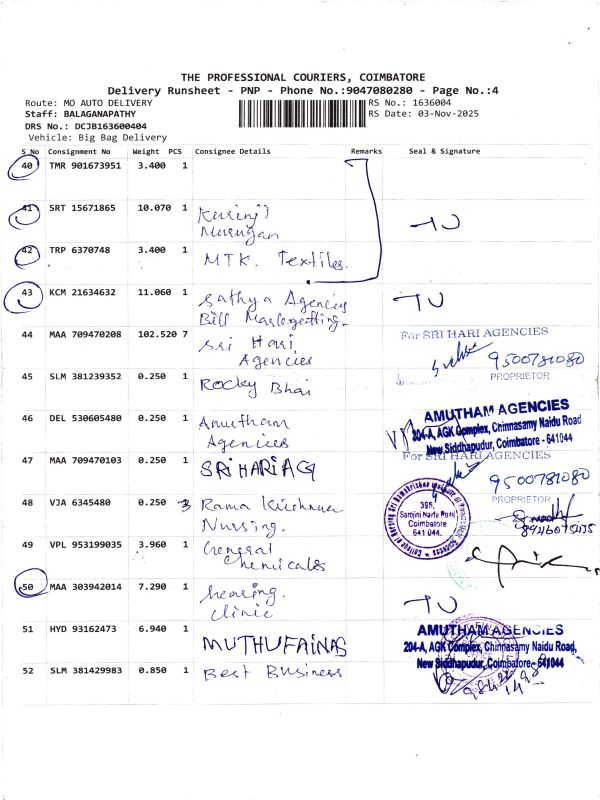 THE PROFESSIONAL COURIERS, COIMBATORE
Delivery Runsheet - PNP - Phone No.:9047080280 - Page No.:4
Route: MO AUTO DELIVERY
RS No.: 1636004
Staff: BALAGANAPATHY
RS Date: 03-Nov-2025
DRS No.: DCJB163600404
Vehicle: Big Bag Delivery
S No Consignment No Weight PCS Consignee Details Remarks Seal & Signature
40 TMR 901673951 3.400 1
41 SRT 15671865 10.070 1 Kurinji
Murugan
42 TRP 6370748 3.400 1 MTK. Textiles.
43 KCM 21634632 11.060 1 Sathya Agencies
Bill
44 MAA 709470208 102.520 7 Sri Hari
Agencies
For SRI HARI AGENCIES
9500781080
PROPRIETOR
45 SLM 381239352 0.250 1 Rocky Bhai
46 DEL 530605480 0.250 1 Amutham
Agencies
AMUTHAM AGENCIES
204-A, AGK Complex, Chinnasamy Naidu Road
New Siddhapudur, Coimbatore - 641044
47 MAA 709470103 0.250 1 SRI HARI AG
For SRI HARI AGENCIES
9500781080
PROPRIETOR
48 VJA 6345480 0.250 3 Rama Krishna
Nursing.
395,
Sarojini Naidu Road,
Coimbatore
641 044.
49 VPL 953199035 3.960 1 General
Chemicals
50 MAA 303942014 7.290 1 hearing.
clinic
51 HYD 93162473 6.940 1 MUTHUFAINAS
AMUTHAM AGENCIES
204-A, AGK Complex, Chinnasamy Naidu Road,
New Siddhapudur, Coimbatore- 641044
52 SLM 381429983 0.850 1 Best Business